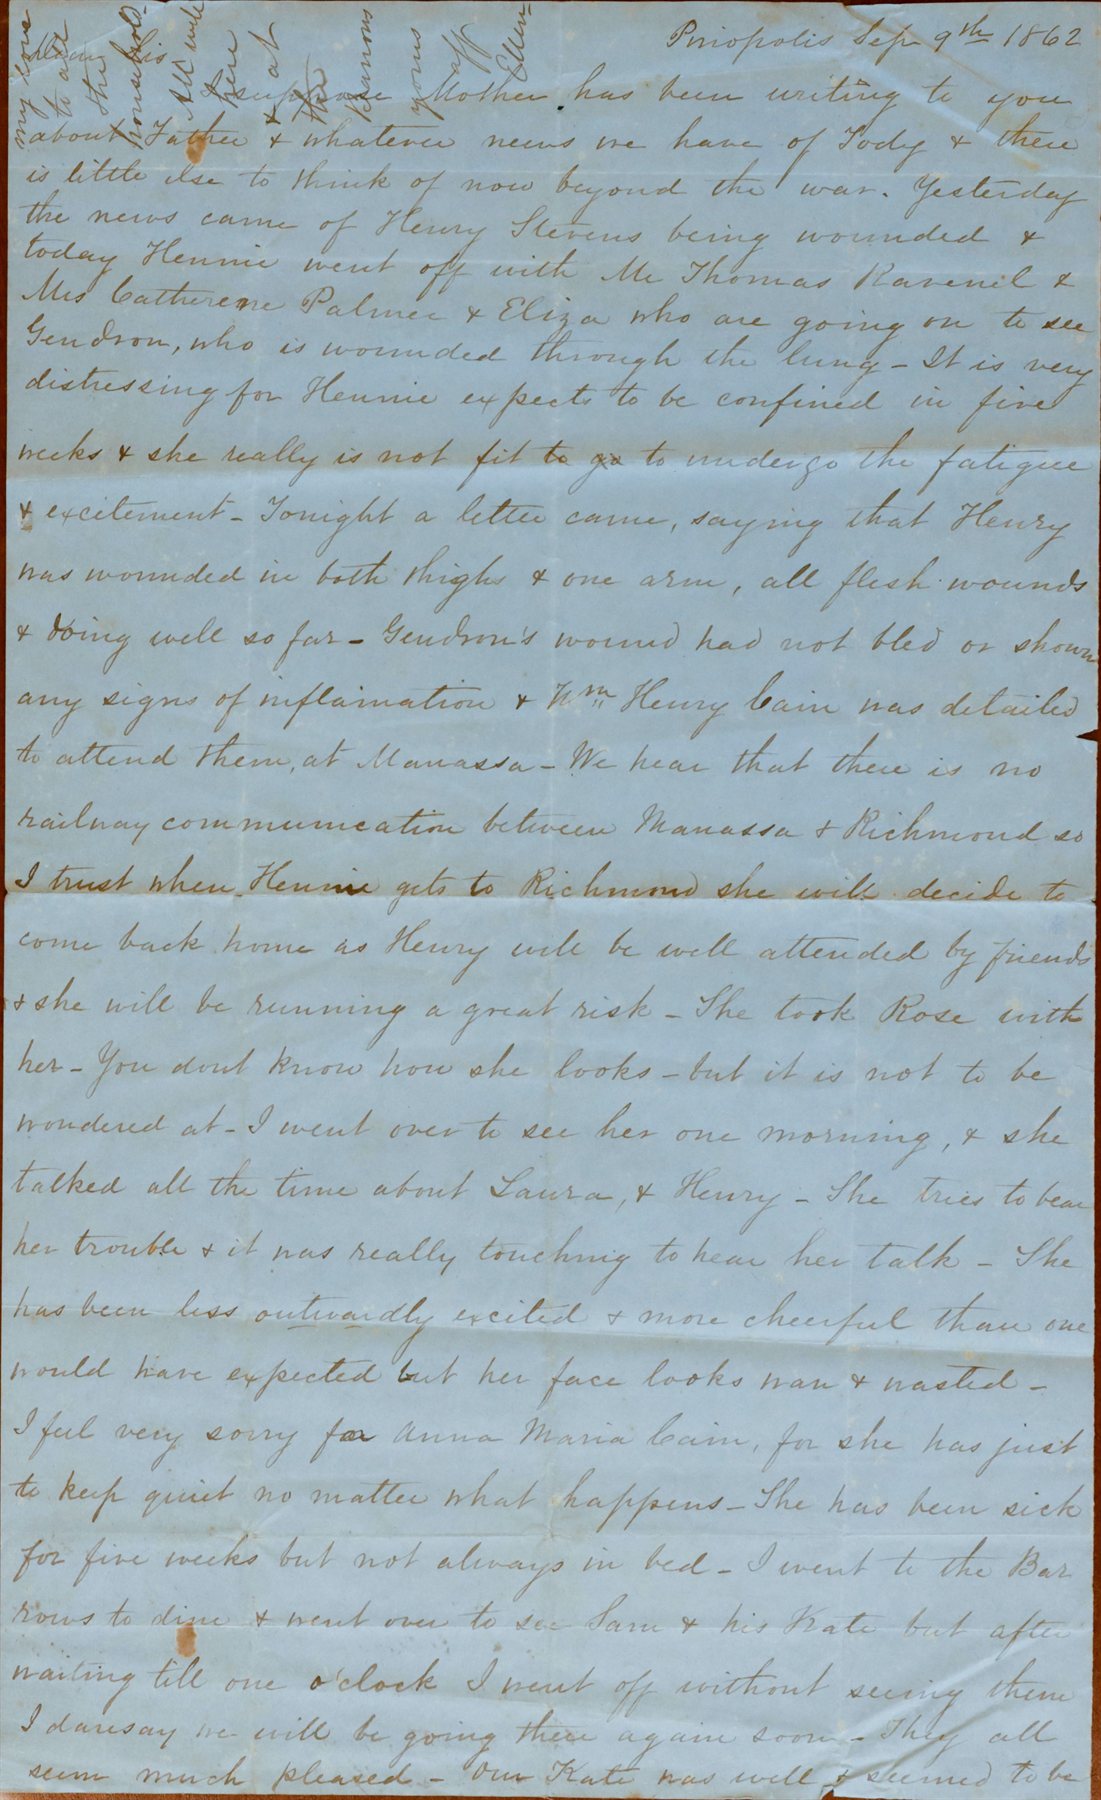 Pinopolis Sep 9th 1862
Dear Sis
I suppose Mother has been writing to you
about Father & whatever news we have of Tody & there
is little else to think of now beyond the war. Yesterday
the news came of Henry Stevens being wounded &
today Hennie went off with Mr Thomas Ravenel &
Mrs Catherene Palmer & Eliza who are going on to see
Gendron, who is wounded through the lung - It is very
distressing for Hennie expects to be confined in five
weeks & she really is not fit to go to undergo the fatigue
& excitement - Tonight a letter came, saying that Henry
was wounded in both thighs & one arm, all flesh wounds
& doing well so far - Gendron's wound had not bled or shown
any signs of inflamation & Wm Henry Cain was detailed
to attend them, at Manassa - We hear that there is no
railway communication between Manassa & Richmond so
I trust when Hennie gets to Richmond she will decide to
come back home as Henry will be well attended by friends
& she will be running a great risk - She took Rose with
her - You dont know how she looks - but it is not to be
wondered at - I went over to see her one morning, & she
talked all the time about Laura, & Henry - She tries to bear
her trouble & it was really touching to hear her talk - She
has been less outwardly excited & more cheerful than one
would have expected but her face looks wan & wasted -
I feel very sorry for Anna Maria Cain, for she has just
to keep quiet no matter what happens - She has been sick
for five weeks but not always in bed - I went to the Bar
rows to dine & went over to see Sam & his Kate but after
waiting till one o'clock I went off without seeing them
I daresay we will be going there again soon - They all
seem much pleased - Our Kate was well & seemed to be
my love
to all
the
household -
All well
here
& at
the
Barrows
yours
aff
Ellen -